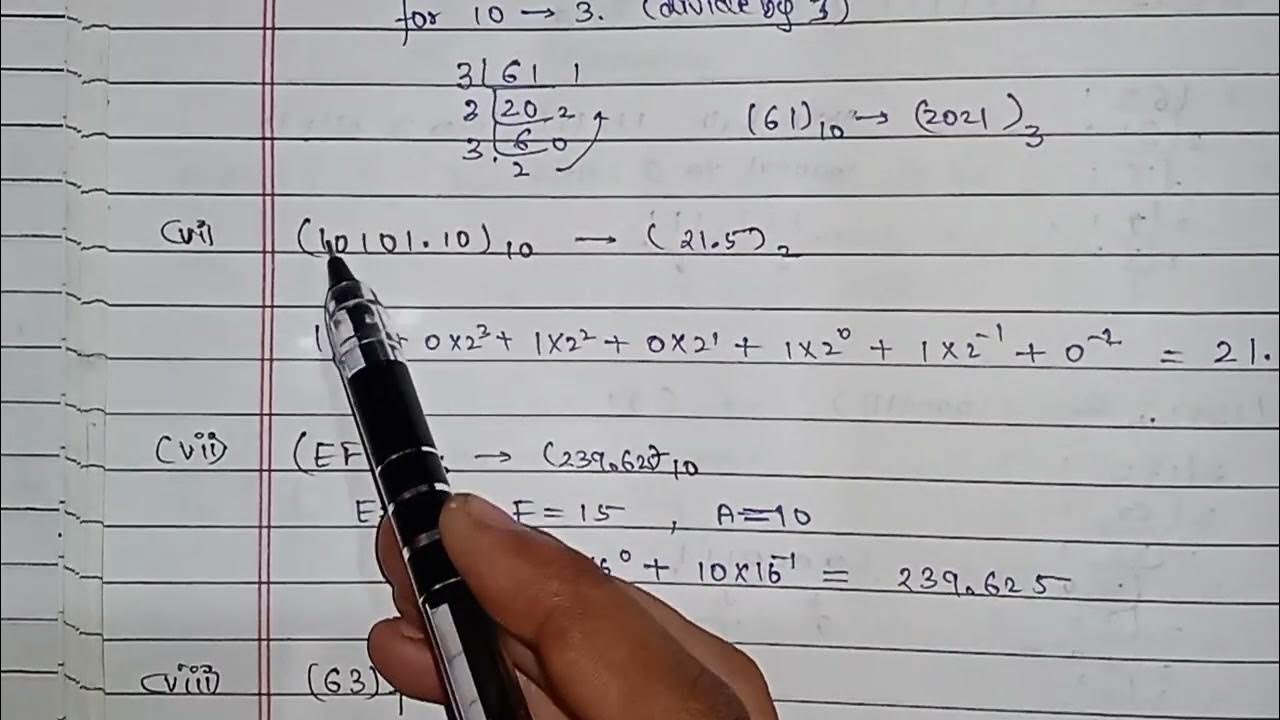 for 10 → 3. (divide by 3)
3 | 61 1
3 | 20 2
3 | 6 0
2
(61)₁₀ → (2021)₃
(vi) (10101.10)₁₀ → (21.5)₂
1 + 0×2³ + 1×2² + 0×2¹ + 1×2⁰ + 1×2⁻¹ + 0⁻² = 21.
(vii) (EF → (239.625)₁₀
E F = 15 , A = 10
6⁰ + 10×16⁻¹ = 239.625
(viii) (63)